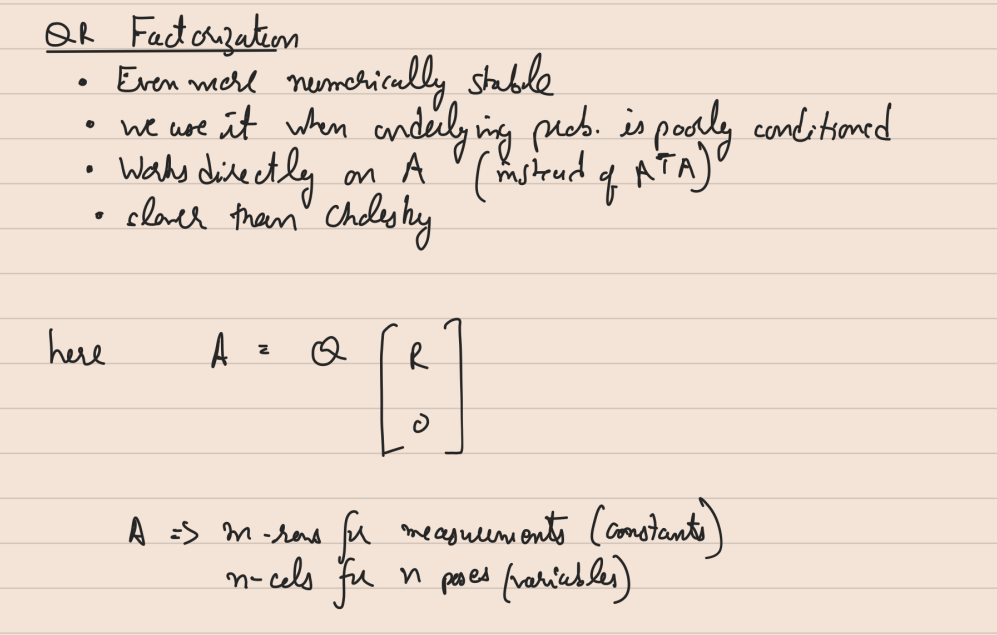 QR Factorization
• Even more numerically stable
• we use it when underlying prob. is poorly conditioned
• Works directly on A (instead of AᵀA)
• slower than Cholesky
here A = Q [ R
0 ]
A => m-rows for measurements (constants)
n-cols for n poses (variables)